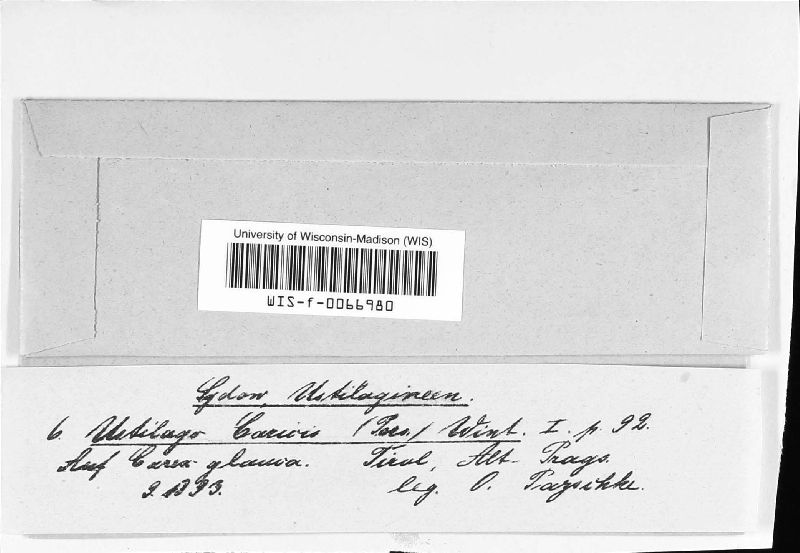 University of Wisconsin-Madison (WIS)
WIS-f-0066980
Sydow, Ustilagineen.
6. Ustilago Caricis (Pers.) Wint. I. p. 92.
Auf Carex glauca. Tirol, Alt-Prags.
9.1893. leg. O. Pazschke.